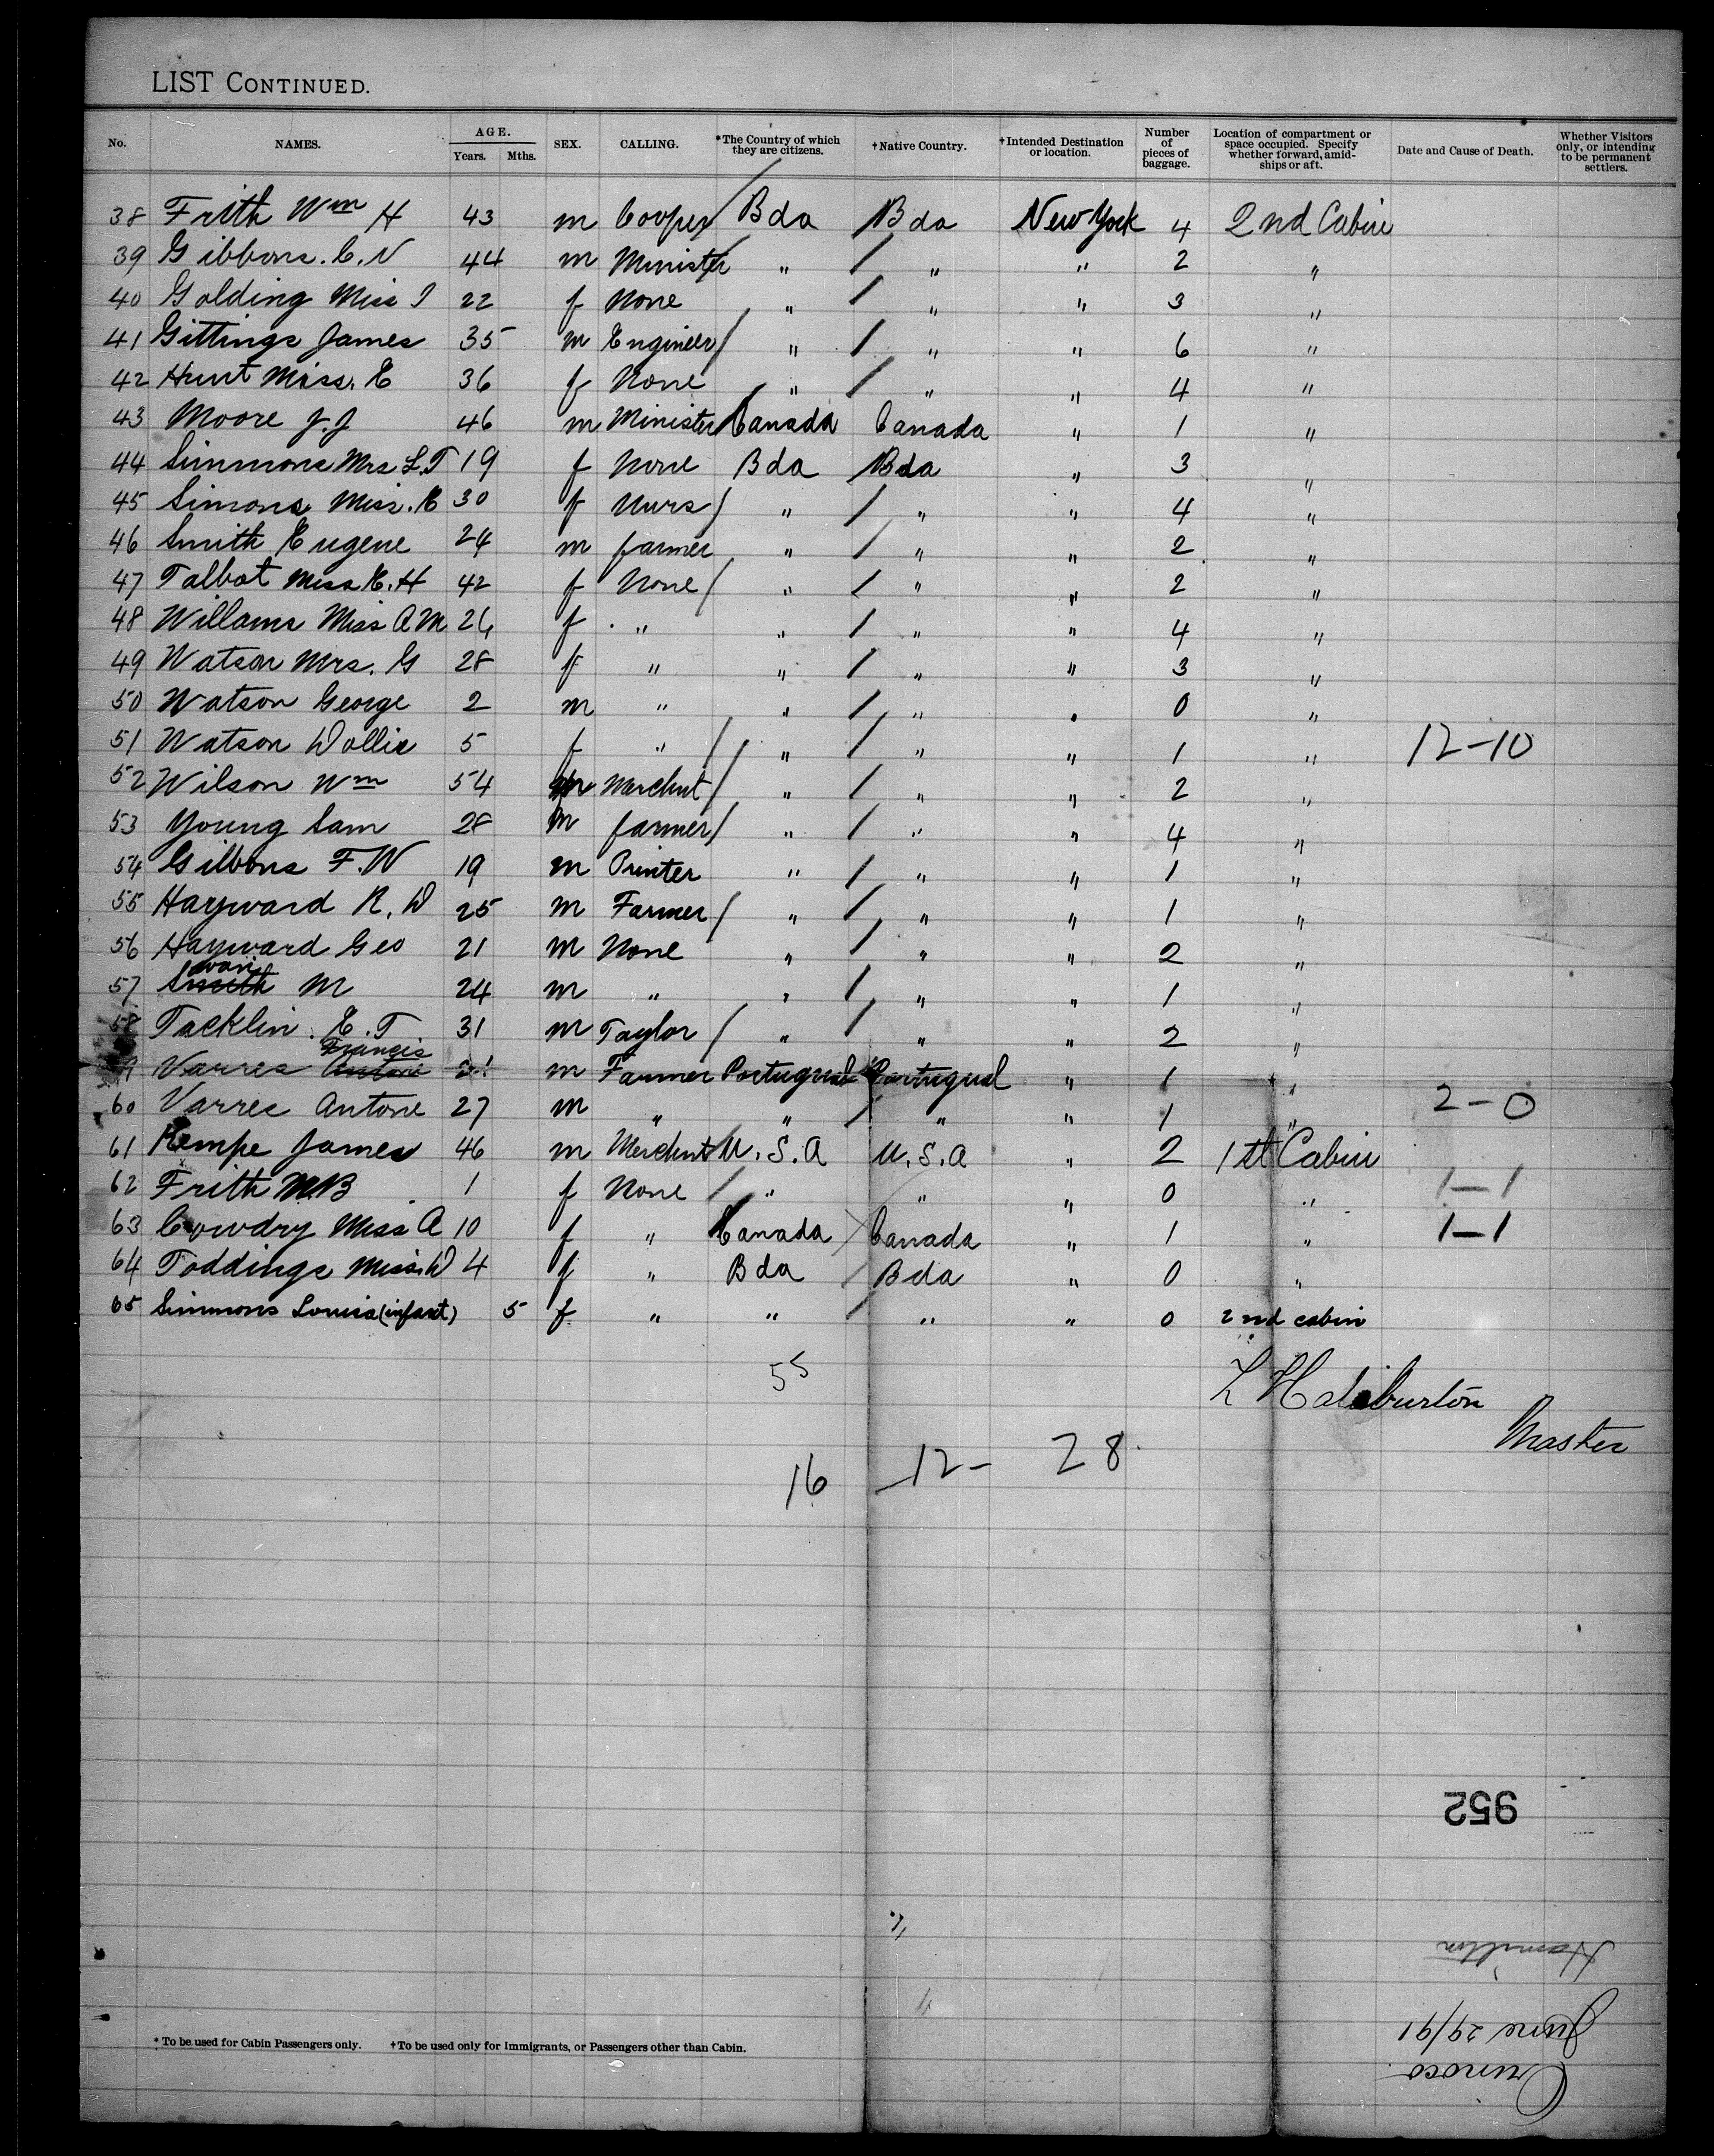 LIST CONTINUED.
No. NAMES. AGE. Years. Mths. SEX. CALLING. *The Country of which they are citizens. †Native Country. †Intended Destination or location. Number of pieces of baggage. Location of compartment or space occupied. Specify whether forward, amidships or aft. Date and Cause of Death. Whether Visitors only, or intending to be permanent settlers.
38 Frith Wm H 43 m Cooper Bda Bda New York 4 2nd Cabin
39 Gibbons. C. N 44 m Minister " " " 2 "
40 Golding Miss I 22 f None " " " 3 "
41 Gittings James 35 m Engineer " " " 6 "
42 Hunt Miss. E 36 f None " " " 4 "
43 Moore J. J 46 m Minister Canada Canada " 1 "
44 Simmons Mrs L. T 19 f None Bda Bda " 3 "
45 Simons Miss. E 30 f Nurs " " " 4 "
46 Smith Eugene 24 m farmer " " " 2 "
47 Talbot Miss E. H 42 f None " " " 2 "
48 Willams Miss A M 26 f " " " " 4 "
49 Watson Mrs. G 28 f " " " " 3 "
50 Watson George 2 m " " " " 0 "
51 Watson Dollie 5 f " " " " 1 " 12-10
52 Wilson Wm 54 m Merchnt " " " 2 "
53 Young Sam 28 m farmer " " " 4 "
54 Gilbons F. W 19 m Printer " " " 1 "
55 Hayward R. D 25 m Farmer " " " 1 "
56 Hayward Geo 21 m None " " " 2 "
57 Smith M 24 m " " " " 1 "
58 Tacklin. E. T 31 m Taylor " " " 2 "
Francis
Varres Antone m Farmer Portugual Portugual " 1 "
60 Varres Antone 27 m " " " " 1 " 2-0
61 Kempe James 46 m Merchnt U. S. A U. S. A " 2 1st Cabin
62 Frith M B 1 f None " " " 0 " 1-1
63 Cowdry Miss A 10 f " Canada Canada " 1 " 1-1
64 Toddings Miss. W 4 f " Bda Bda " 0 "
65 Simmons Louisa (infant) 5 f " " " " 0 2nd cabin
55
L Haliburton
Master
16 12- 28
952
Hamilton
June 29/91
Orinoco
* To be used for Cabin Passengers only. †To be used only for Immigrants, or Passengers other than Cabin.